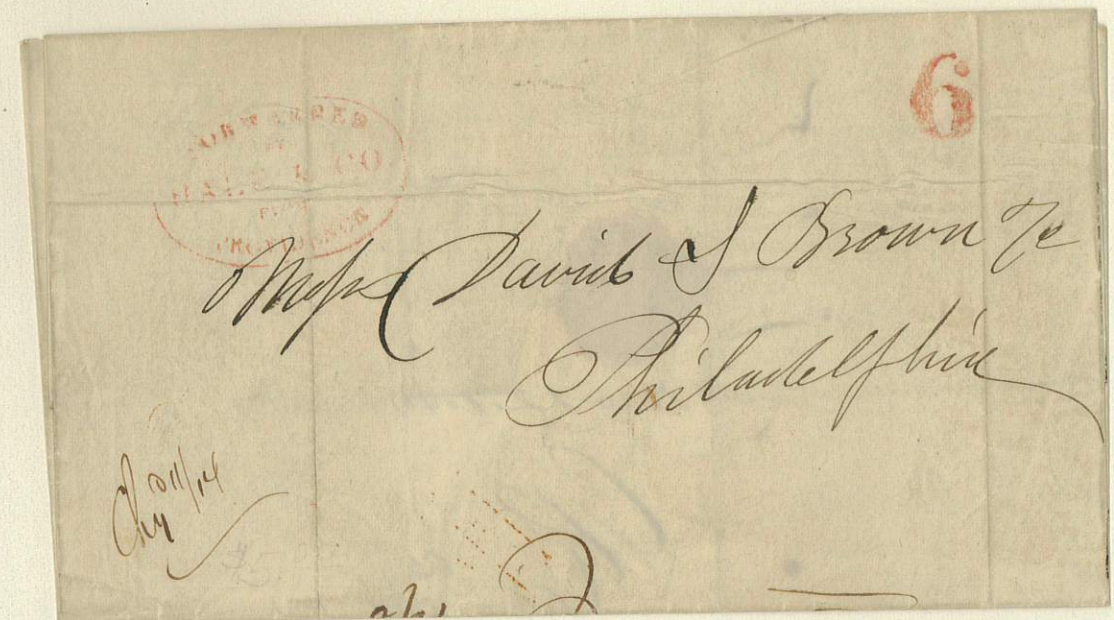 6
FORWARDED
BY
HALE & CO
FROM
PROVIDENCE
Mess David S Brown & Co
Philadelphia